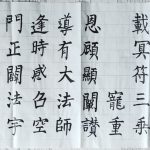 載冥符三乗
寵重
恩顧顯闡讚
導有大法師
逢時感召空
門正闢法宇